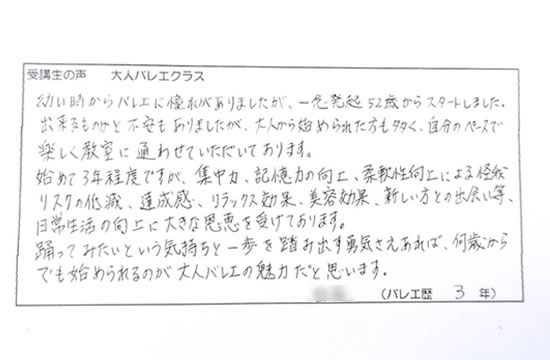 受講生の声　大人バレエクラス
幼い時からバレエに憧れがありましたが、一念発起52歳からスタートしました。
出来るものかと不安もありましたが、大人から始められた方も多く、自分のペースで
楽しく教室に通わせていただいております。
始めて3年程度ですが、集中力、記憶力の向上、柔軟性向上による怪我
リスクの低減、達成感、リラックス効果、美容効果、新しい方との出会い等、
日常生活の向上に大きな恩恵を受けております。
踊ってみたいという気持ちと一歩を踏み出す勇気さえあれば、何歳から
でも始められるのが大人バレエの魅力だと思います。
（バレエ歴　3　年）